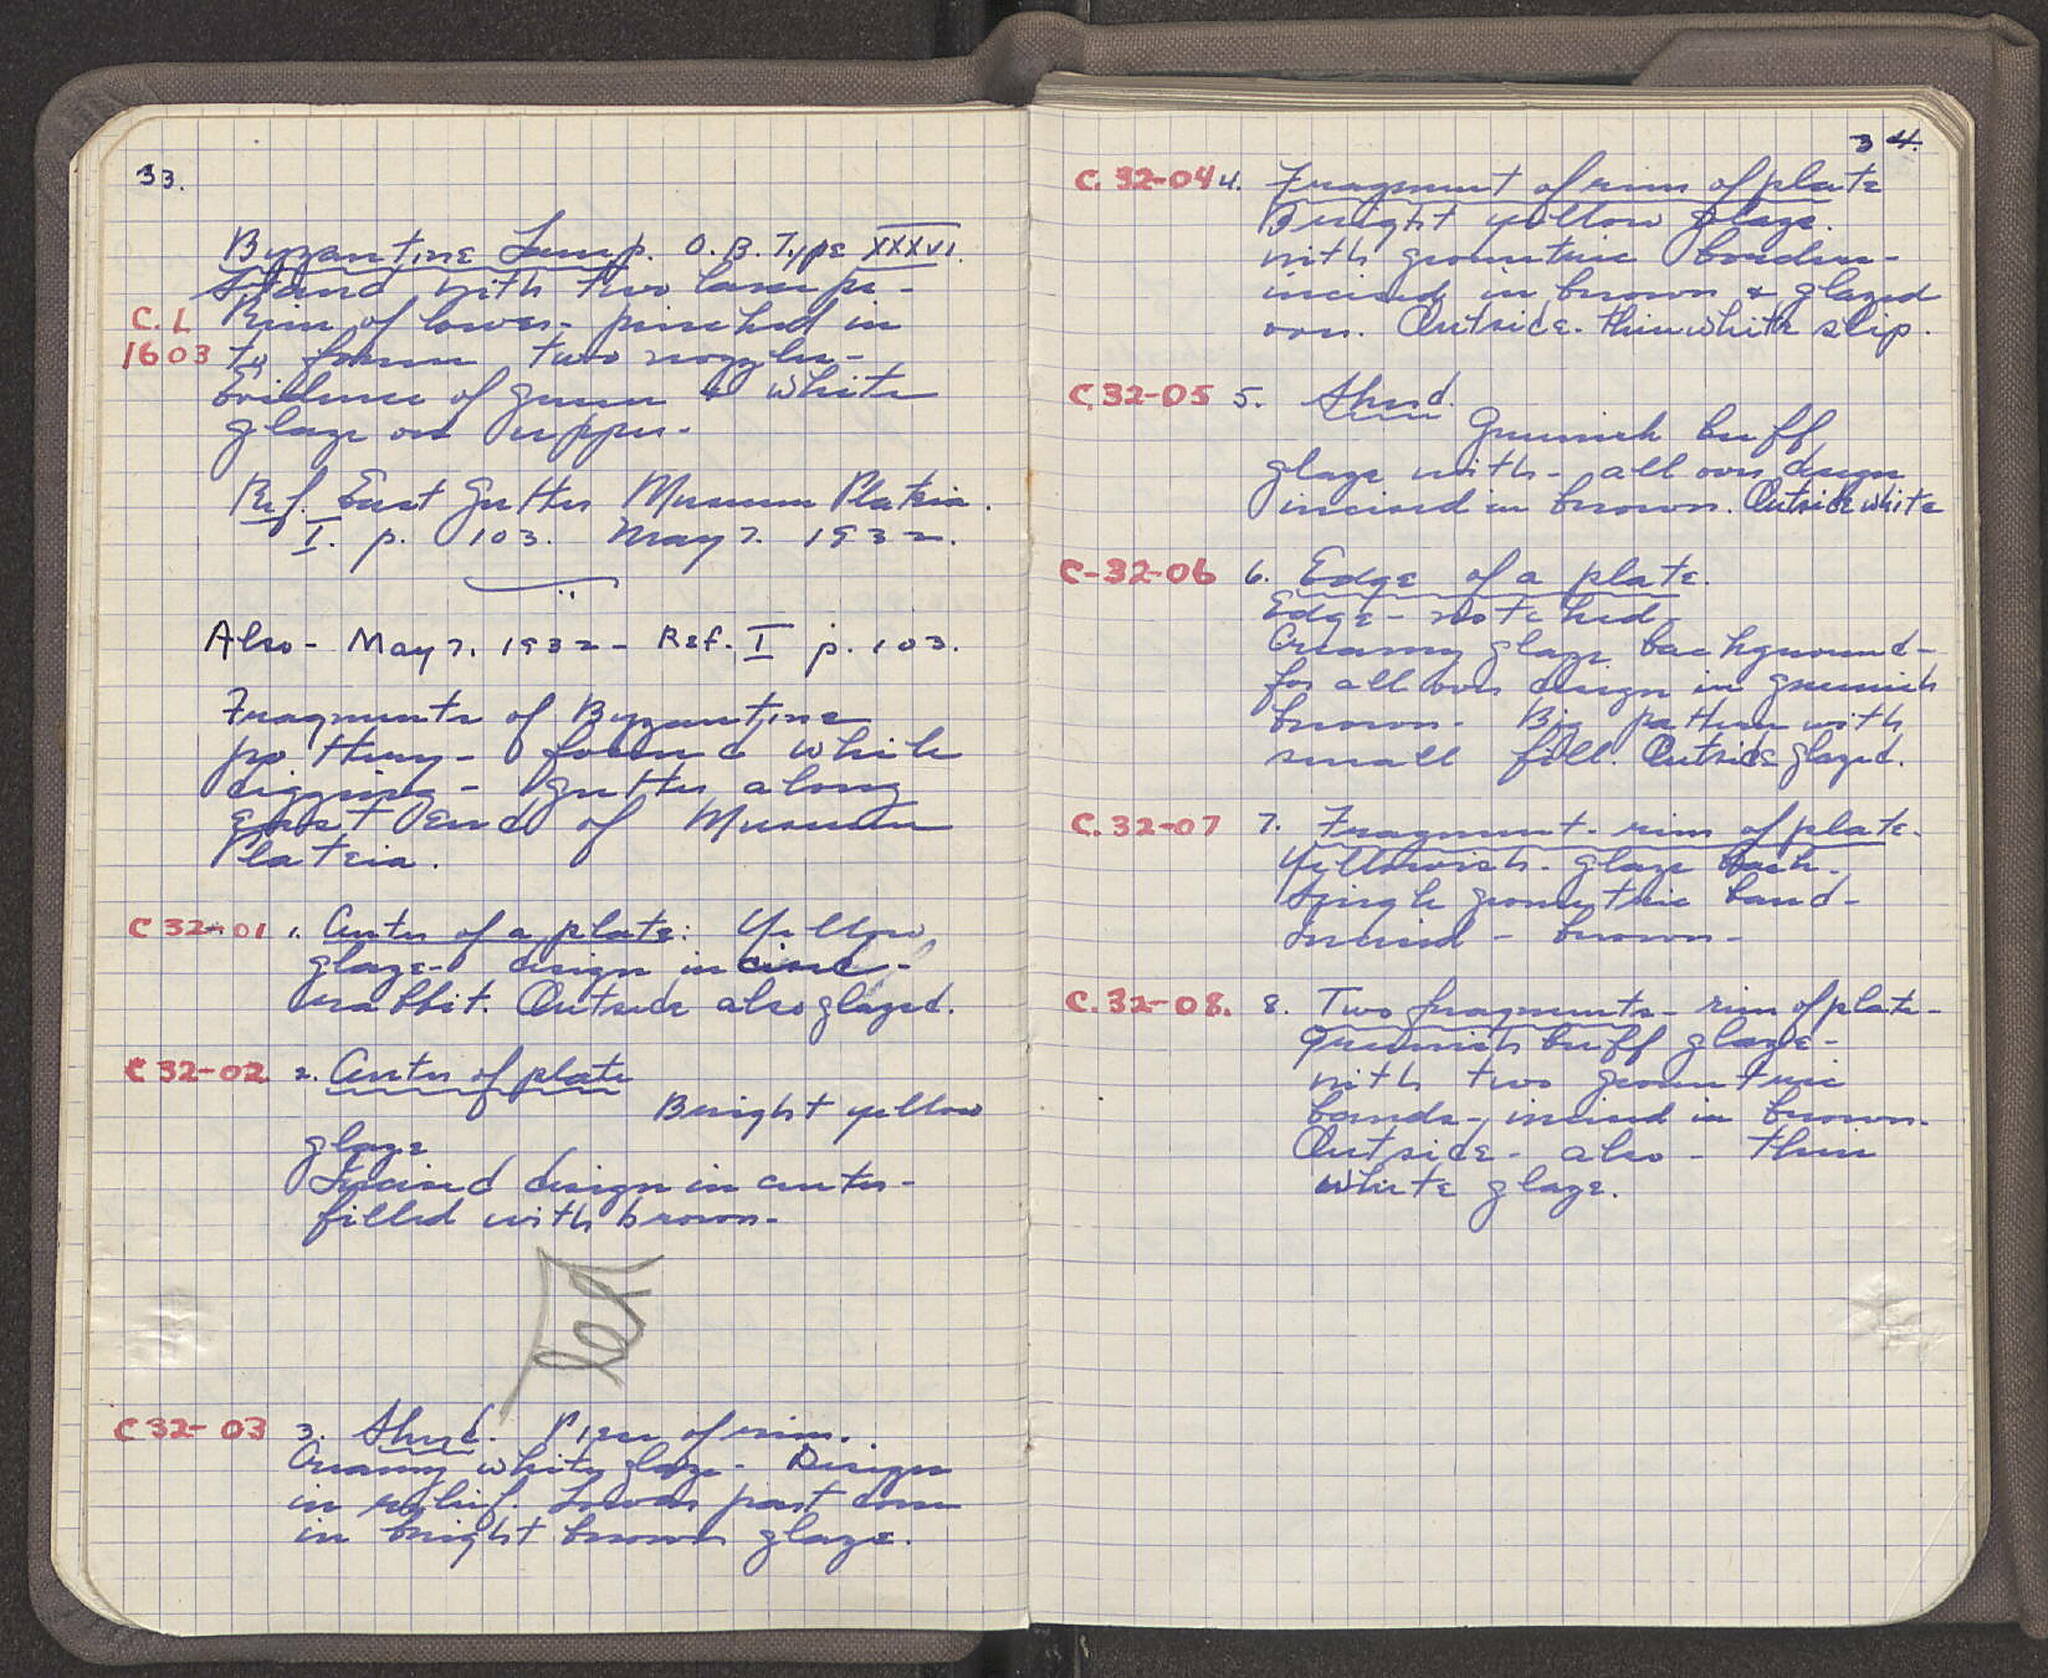 33.
Byzantine Lamp. O.B. Type XXXVI.
Stand with two lamps -
C.L Rim of lower - pinched in
1603 to form two nozzles -
Evidence of green & white
glaze on upper.
Ref. East Gutter Museum Plateia.
I. p. 103. May 7. 1932.
Also - May 7. 1932 - Ref. I p. 103.
Fragments of Byzantine
pottery - found while
digging - gutter along
east end of Museum
Plateia.
C 32-01 1. Center of a plate: Yellow
glaze - design incised -
rabbit. Outside also glazed.
C 32-02 2. Center of plate
Bright yellow
glaze
Incised design in center -
filled with brown -
C 32-03 3. Sherd. Piece of rim.
Creamy white glaze - Design
in relief. Lower part
in bright brown glaze.
34.
C. 32-04 4. Fragment of rim of plate
Bright yellow glaze.
with geometric border -
incised in brown & glazed
over. Outside - thin white slip.
C. 32-05 5. Sherd.
Greenish buff
glaze with - all over design
incised in brown. Outside white
C-32-06 6. Edge of a plate.
Edge - notched -
Creamy glaze background -
for all over design in greenish
brown - Big pattern with
small fill. Outside glazed.
C. 32-07 7. Fragment - rim of plate.
Yellowish - glaze back.
Single geometric band -
Incised - brown -
C. 32-08. 8. Two fragments - rim of plate -
Greenish buff glaze -
with two geometric
bands - incised in brown.
Outside - also - thin
white glaze.